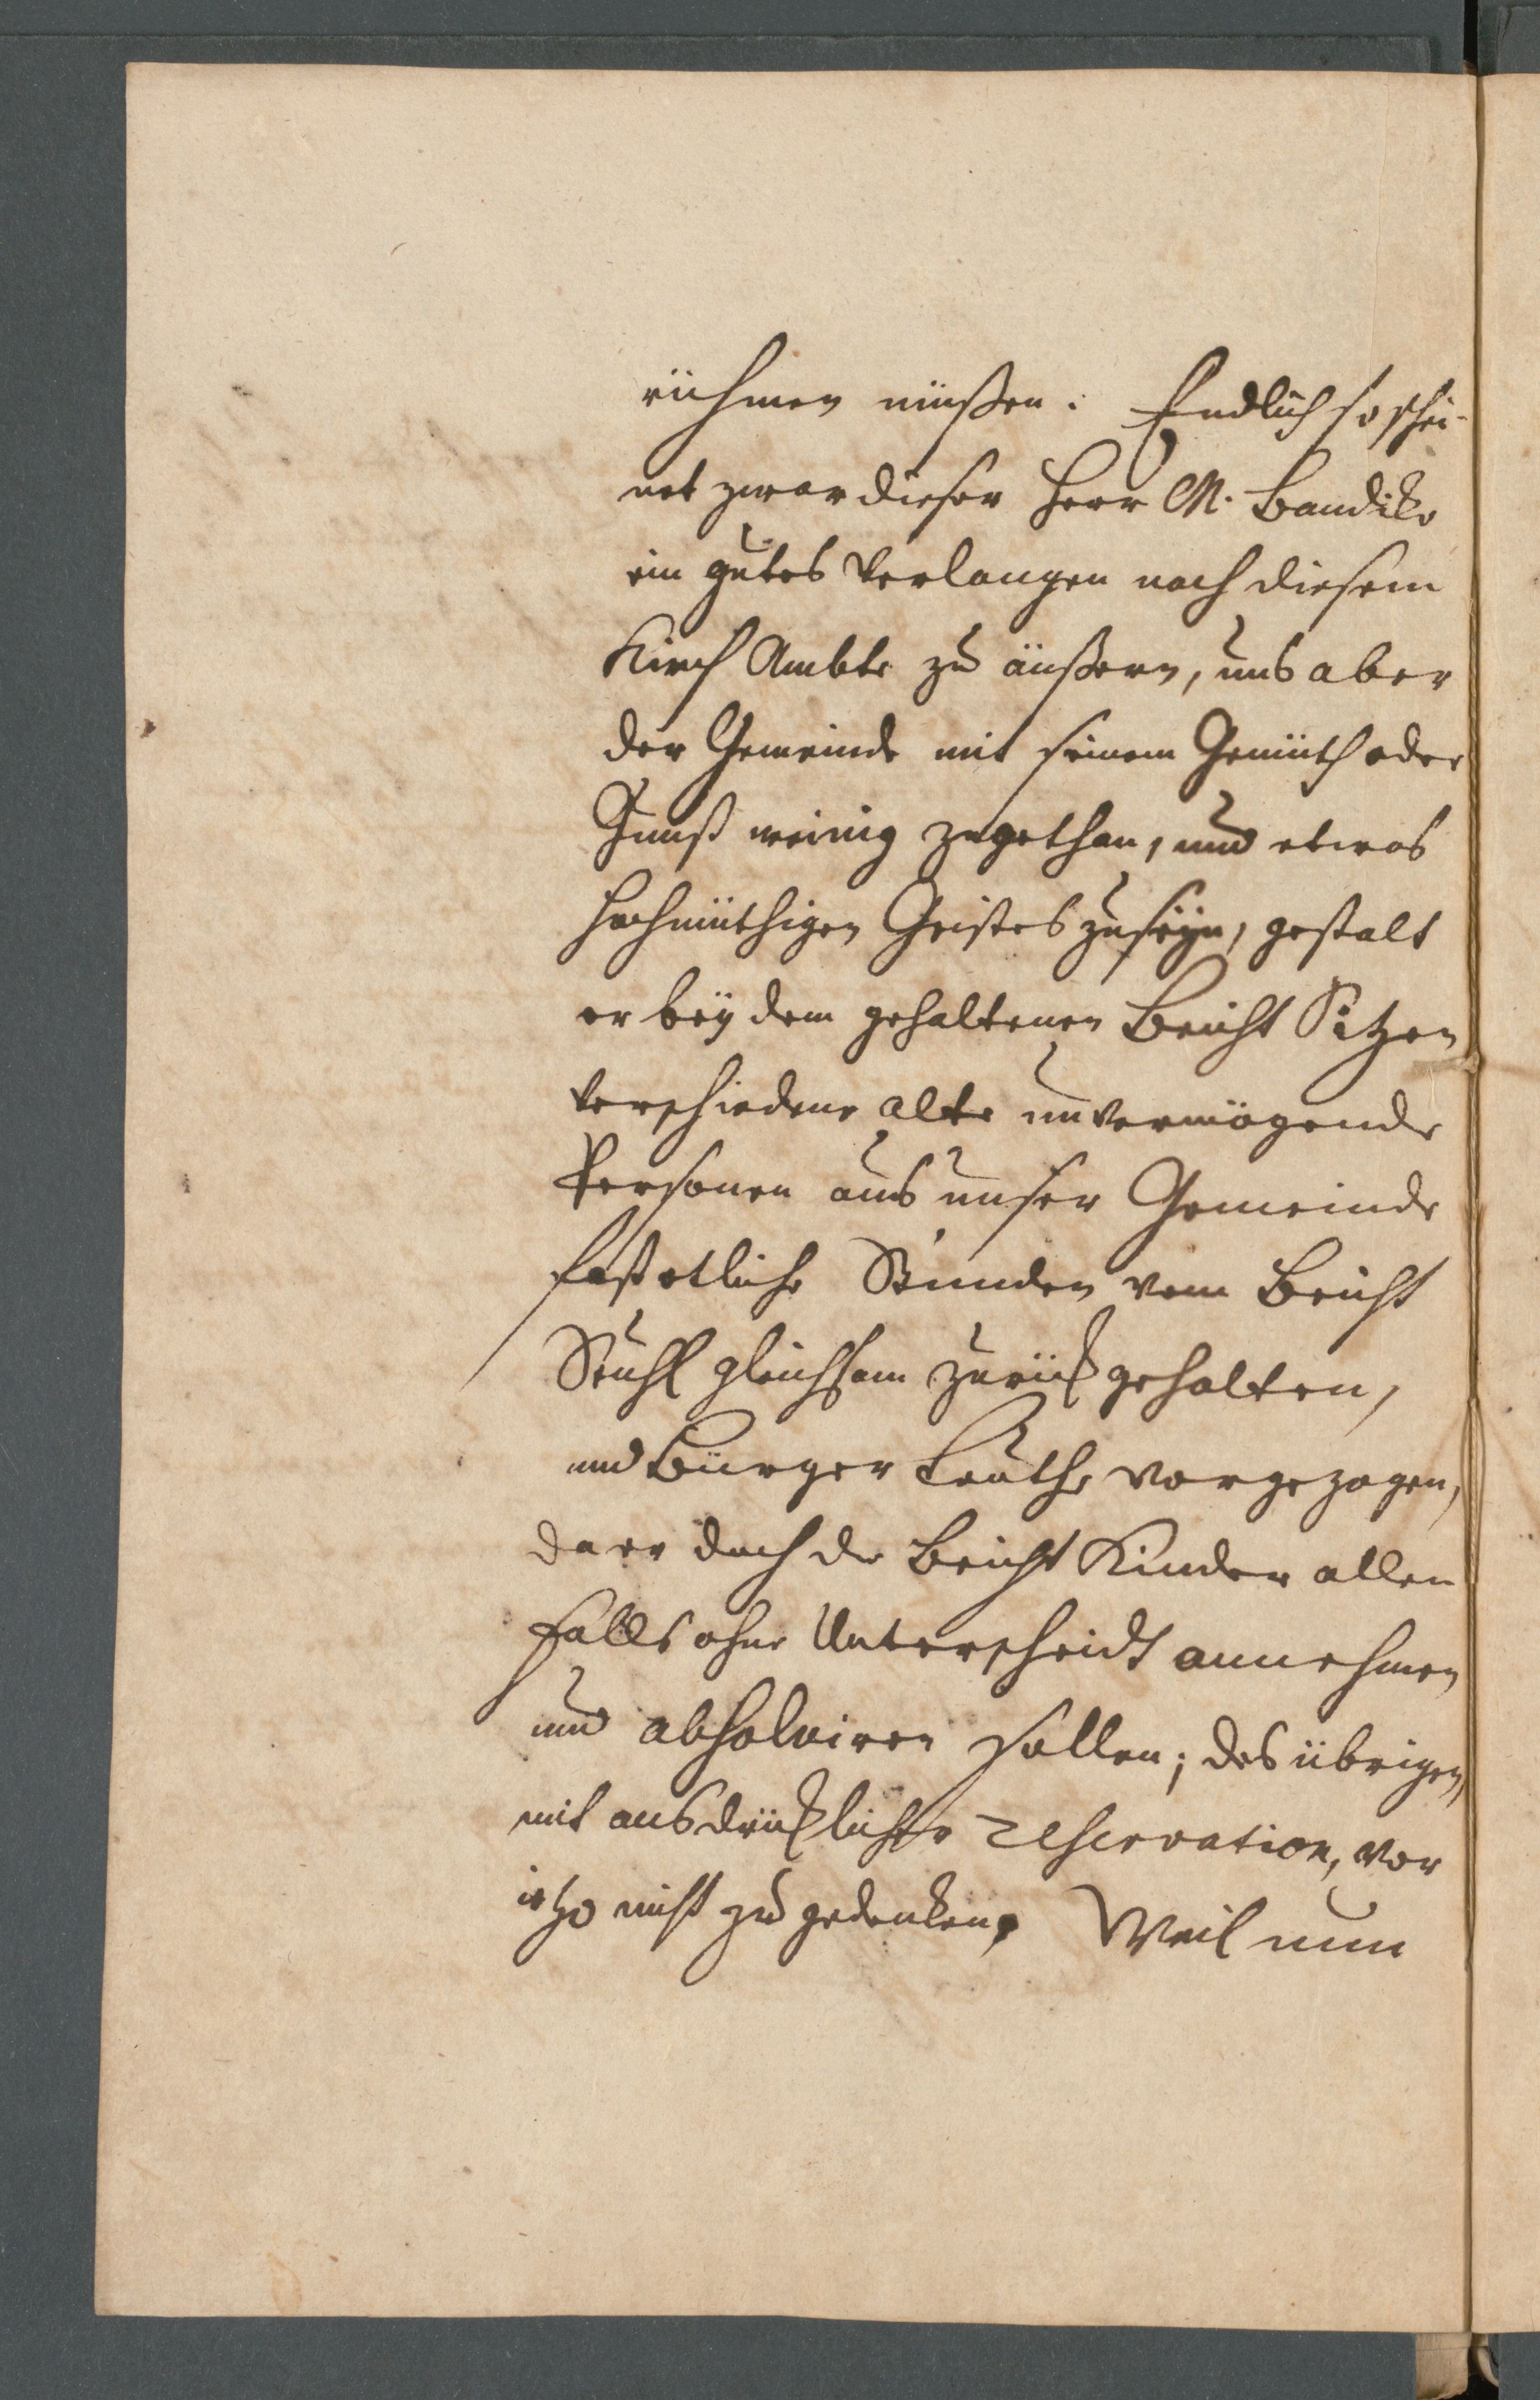 rühmen müßen. Endlich so schei-
net zwar dieser Herr M. Baudiss
ein gutes Verlangen nach diesem
Kirch Ambte zu äußern, uns aber
der Gemeinde mit seinem Gemüth oder
Gunst weinig zugethan, und etwas
hochmüthigen Geistes zuseÿn, gestalt
er beÿ dem gehaltenen Beicht Sitzen
verschiedene alte unvermögende
Personen aus unser Gemeinde
fast etliche Stunden vom Beicht
Stuhl gleichsam zurück gehalten,
und Bürger Leuthe vorgezogen,
da er doch die Beicht Kinder allen
falls ohne Unterscheidt annehmen
und absolviren sollen; des übrigen,
mit ausdrücklicher reservation, vor
itzo nicht zu gedenken. Weil nun